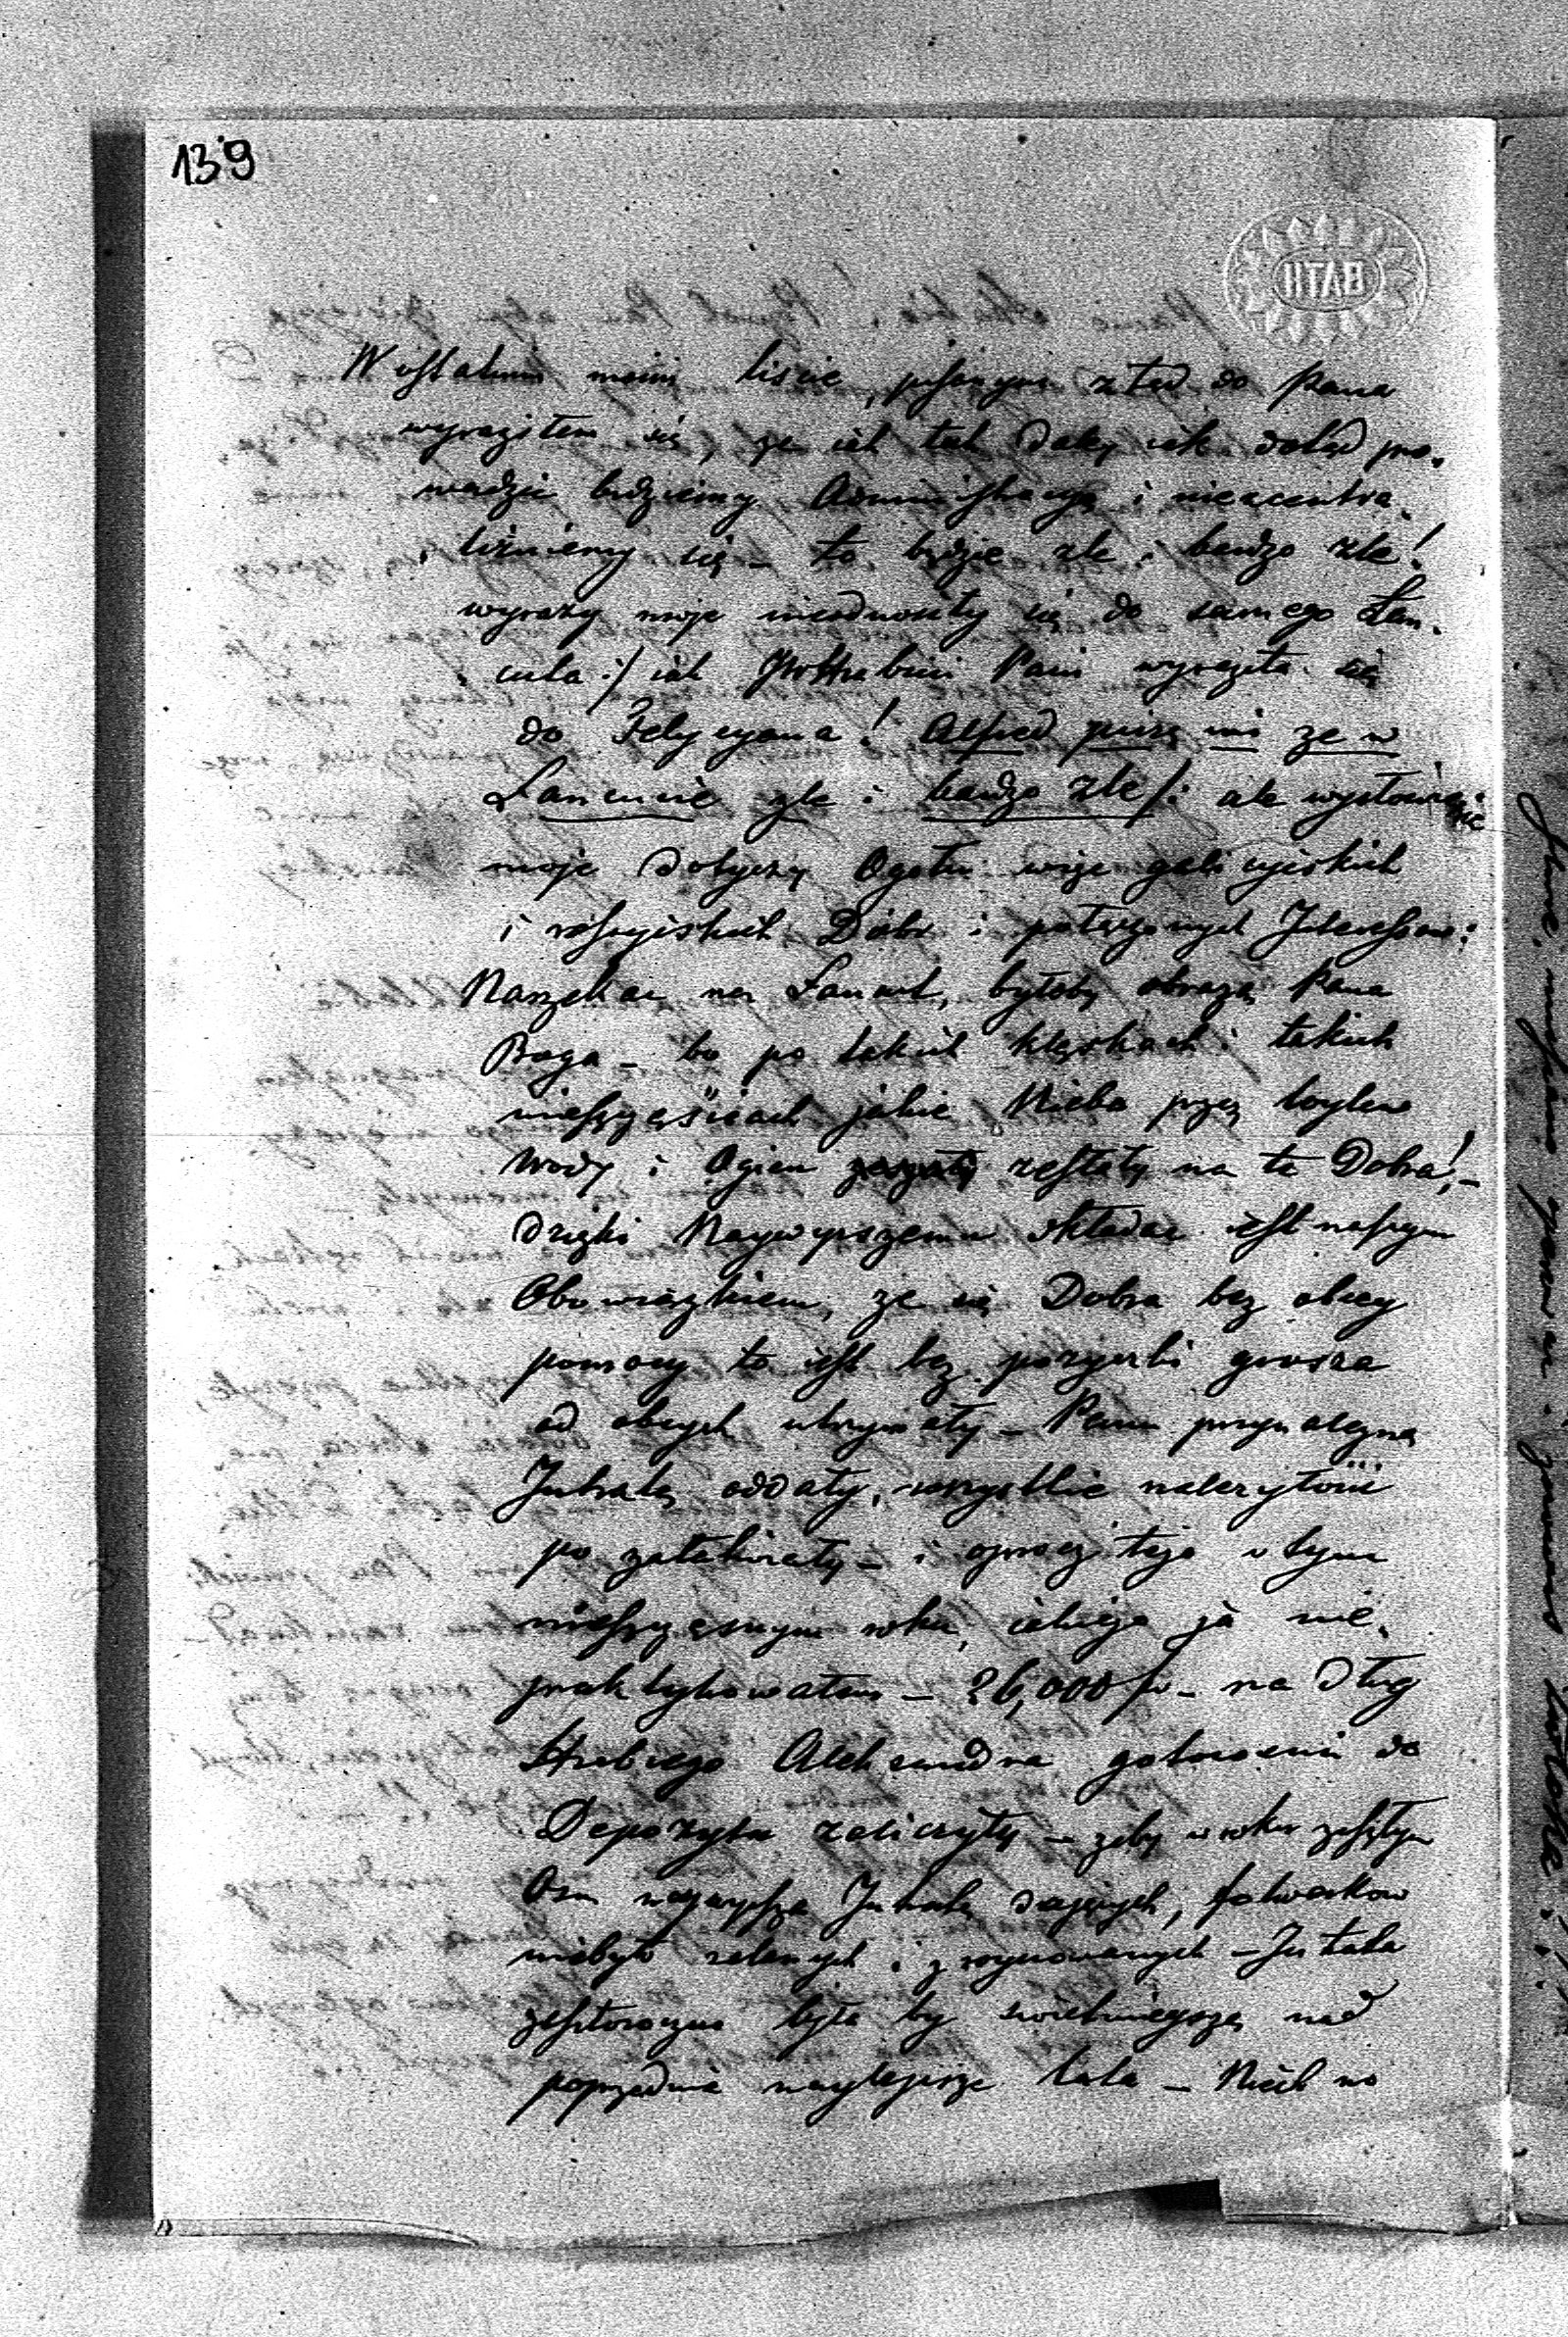 139
BATH
W ostatnim moim liście, pisanym ztąd do Pana
wyraziłem się, że iek tak daley iak dotąd pro-
wadzić będziemy Administracyą i nie
liźniemy się – to będzie źle i bardzo źle!
wyrazy moje nieodnosiły się do samego Łań-
cuta :/ iak JW Hrabini Pani wyraziła się
do Felycyana! Alfred pisze mi że w
Łańcucie źle i bardzo źle /: ale wysłowienie
moje dotyczy Ogółu więc galicyiskich
i rossyiskich Dóbr i połączonych Interessow:
Narzekać na Łańcut, byłoby obrazą Pana
Boga – bo po takich klęskach i takich
nieszczęściach jakie Nieba przez tyle
Wody i Ogień zesłały na te Dobra! –
dzięki Naywyższemu składać iest naszym
Obowiązkiem, że się Dobra bez obcey
pomocy to iest bez pożyczki grosza
od obcych utrzymały – Panu przynależną
Intratę oddały, wszystkie należytości
po załatwiały – i oprocz tego w tym
nieszczęsnym roku, iakiego ja nie
praktykowałem – 26,000 fr – na dług
Hrabiego Aleksandra gotowizną do
Depozytu zaliczyły – żeby w roku zeszłym
Osm naywyższe Intratę dających, folwarkow
niebyło zalanych i zrujnowanych – Intrata
zeszłoroczna była by świetnieyszą nad
poprzednie naylepsze lata – Niech no